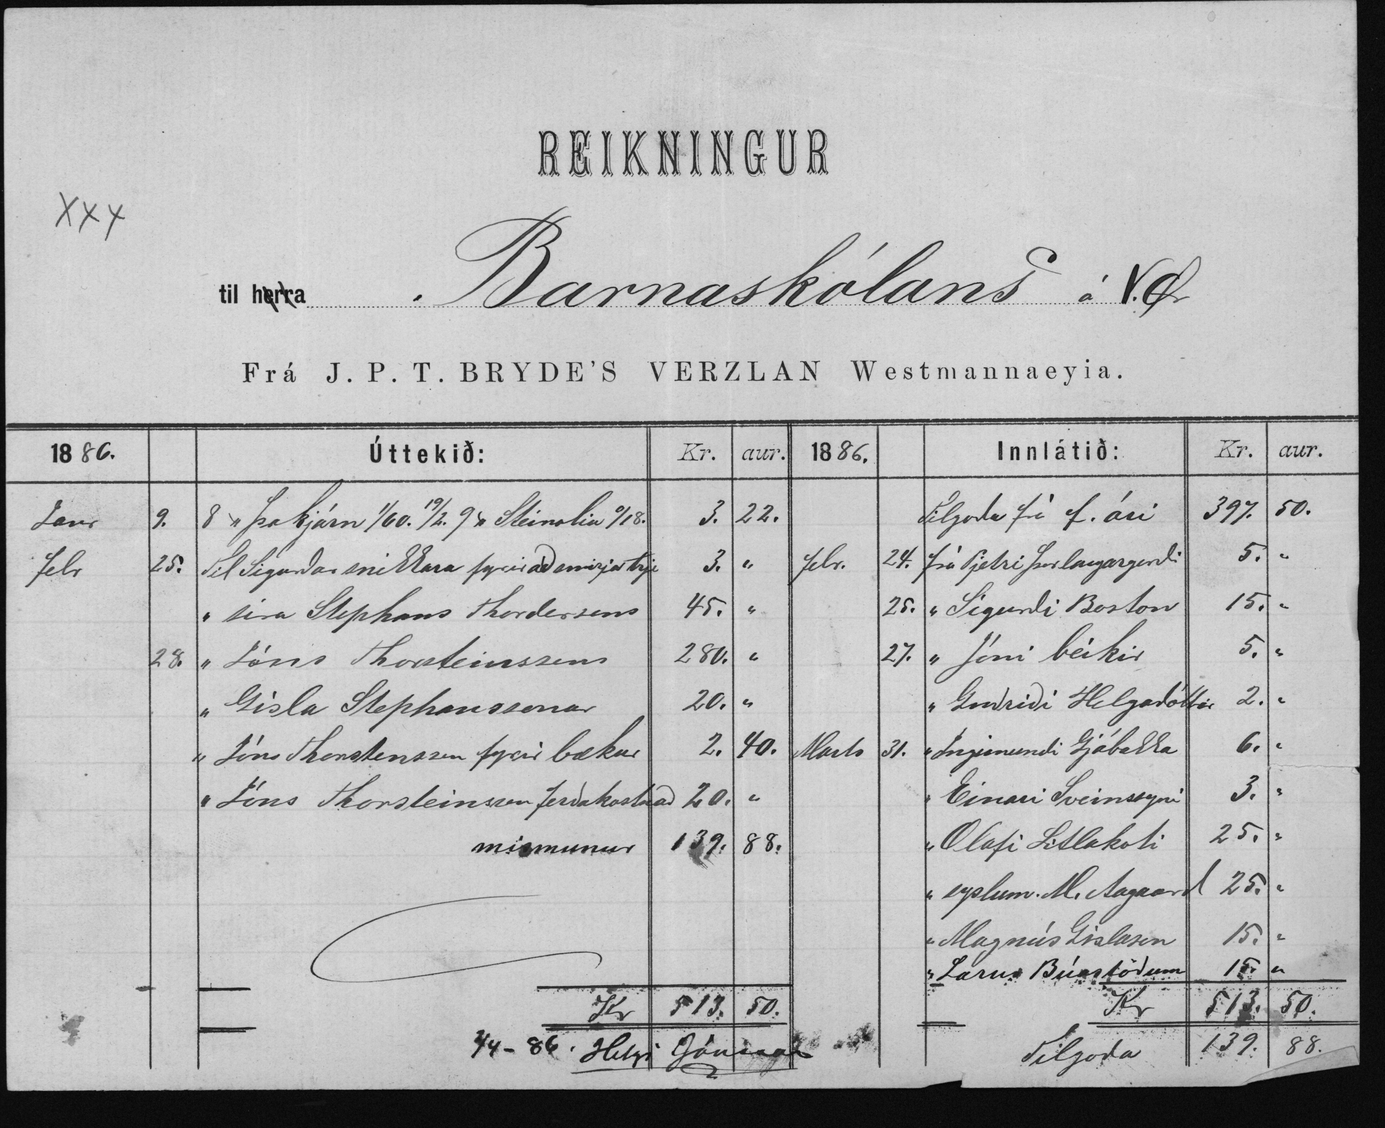 REIKNINGUR
XXX
til herra Barnaskólans á V.Ø
Frá J. P. T. BRYDE'S VERZLAN Westmannaeyia.
1886. Úttekið: Kr. aur.
Janr 9. 8 " þakjárn 1/60. 19/2. 9 " Steinolia 0/18. 3. 22.
febr 25. Til Sigurdar snikkara fyrir ad smirja 3. "
" sira Stephans Thordersens 45. "
28. " Jóns Thorsteinssens 280. "
" Gisla Stephanssonar 20. "
" Jóns Thorstenssen fyrir bækur 2. 40.
" Jóns Thorsteinssen ferdakostnad 20. "
mismunur 139. 88.
Kr 513. 50.
3/4 - 86. Helgi Jónsson
1886. Innlátið: Kr. aur.
Tilgoda frá f. ári 397. 50.
febr. 24. frá Pjetri Þorlaugargerdi 5. "
25. " Sigurdi Boston 15. "
27. " Jóni beikir 5. "
" Gudridi Helgadóttir 2. "
Marts 31. " Ingimundi Gjábakka 6. "
" Einari Sveinssyni 3. "
" Olafi Litlakoti 25. "
" syslum. M. Aagaard 25. "
" Magnús Gislasen 15. "
" Larus Búastödum 15. "
Kr 513. 50.
Tilgoda 139. 88.